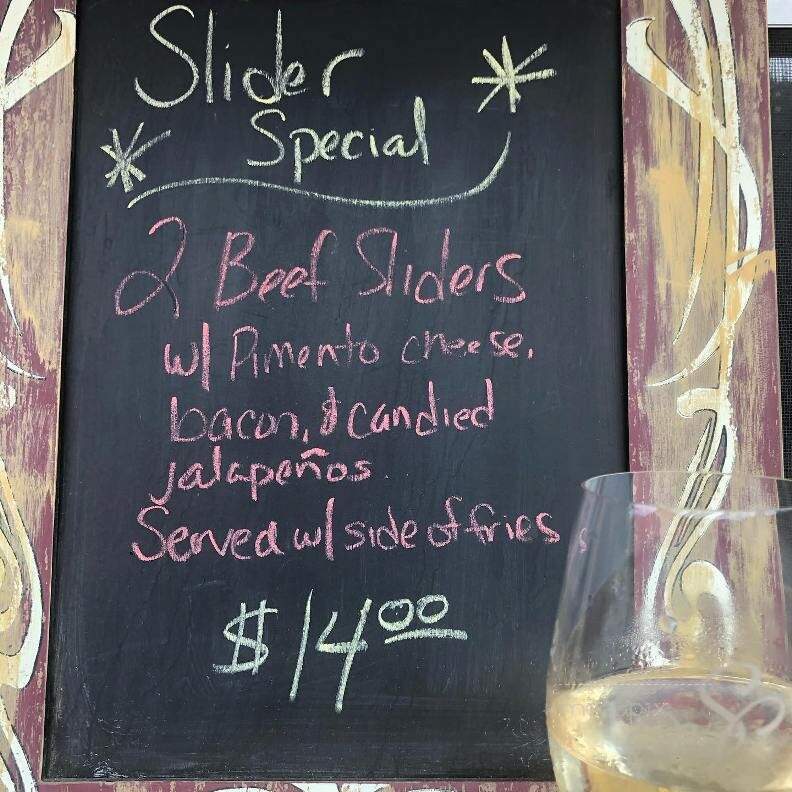 Slider
Special
2 Beef Sliders
w/ Pimento cheese,
bacon, & candied
jalapeños
Served w/ side of fries
$14.00